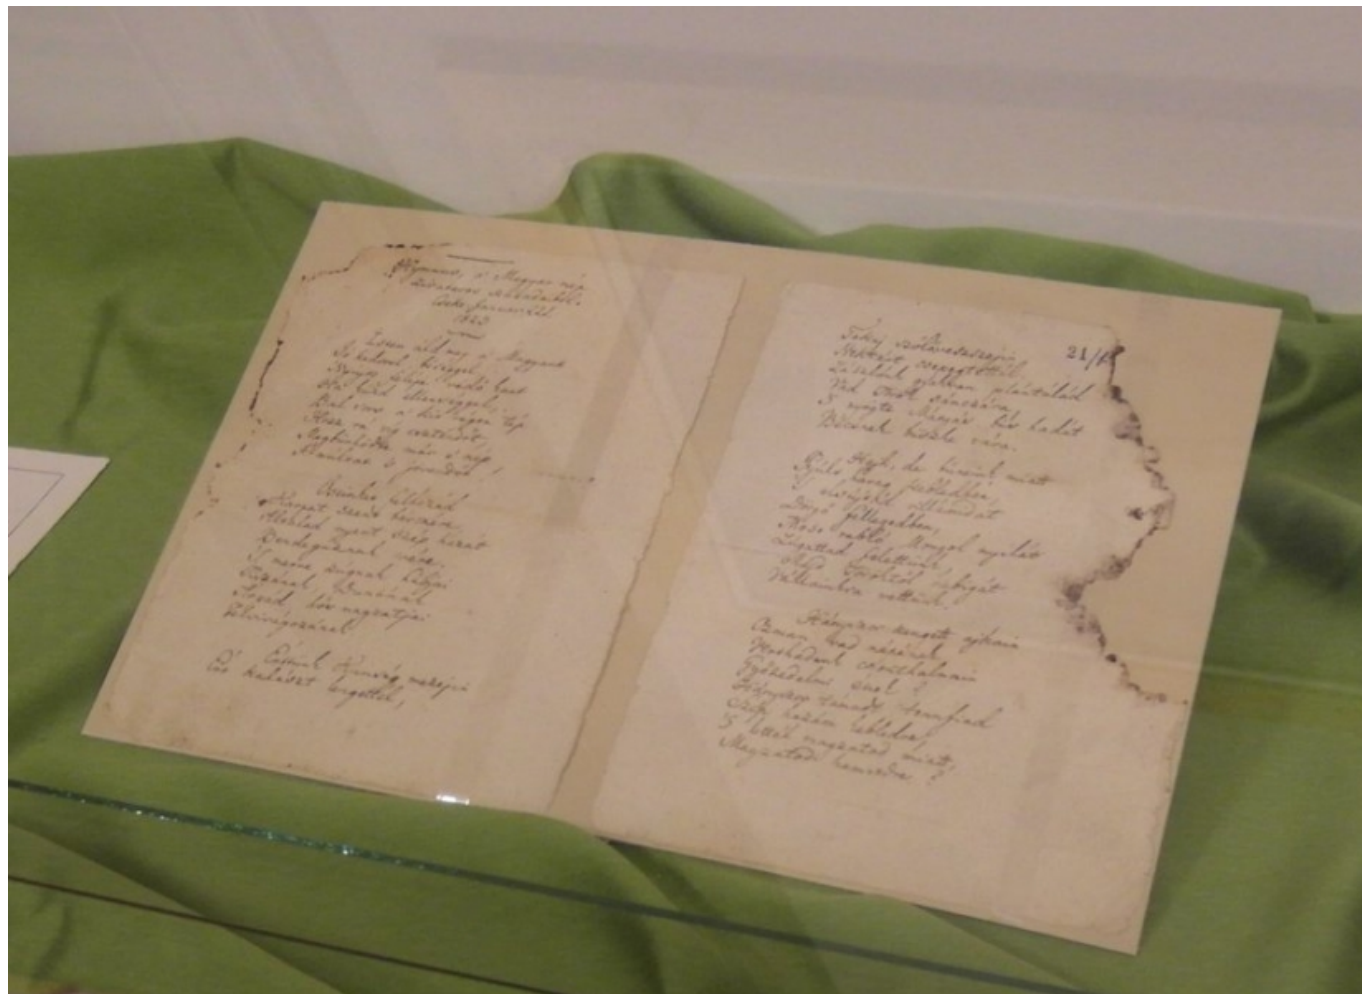 Hymnus, a' Magyar nép
zivataros századaiból.
Cseke, Januar. 22d.
1823
Isten áldd meg a' Magyart
Jó kedvvel, bőséggel,
Nyújts feléje védő kart
Ha küzd ellenséggel;
Bal sors a' kit régen tép
Hozz rá víg esztendőt,
Megbünhödte már e' nép
A' multat 's jövendőt!
Őseinket felhozád
Kárpát szent bérczére,
Általad nyert szép hazát
Bendegúznak vére.
'S merre zúgnak habjai
Tiszának, Dunának,
Árpád hős magzatjai
Felvirágozának.
Értünk Kunság mezejin
Ért kalászt lengettél,
21/b
Tokaj szőlővesszejin
Nektárt csepegtettél.
Zászlónk gyakran plántálád
Vad Török sánczára,
'S nyögte Mátyás bús hadát
Bécsnek büszke vára.
Hajh, de bűneink miatt
Gyúlt harag kebledben,
'S elsújtád villámidat
Dörgő fellegedben,
Most rabló Mongol nyilát
Zúgattad felettünk,
Majd Töröktől rabigát
Vállainkra vettünk.
Hányszor zengett ajkain
Ozman vad népének
Vert hadunk csonthalmain
Győzedelmi ének!
Hányszor támadt tenfiad
Szép hazám kebledre,
'S lettél magzatod miatt,
Magzatod hamvedre?